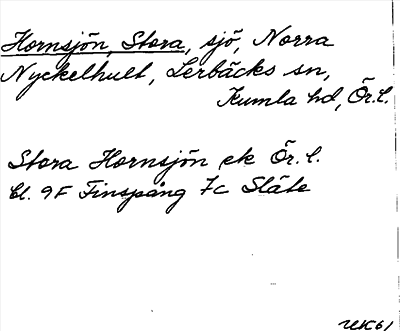 Hornsjön, Stora, sjö, Norra
Nyckelhult, Lerbäcks sn,
Kumla hd, Ör. l.
Stora Hornsjön ek Ör. l.
bl. 9F Finspång 7c Släte
UK61